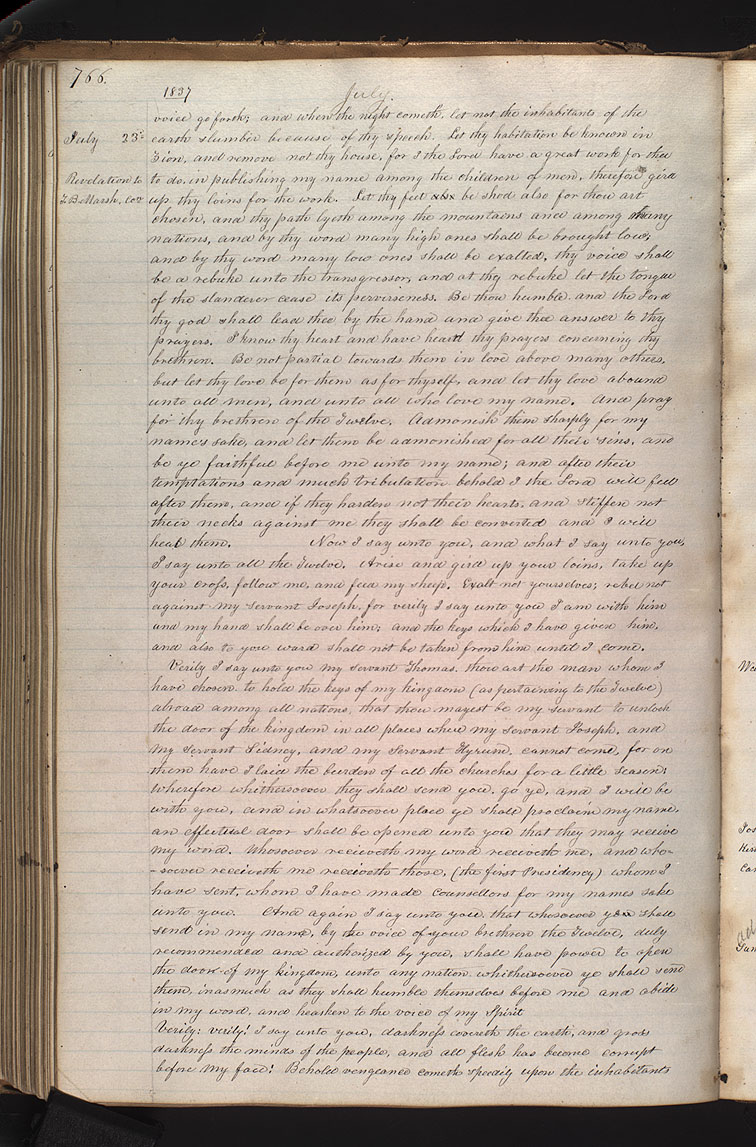 766.
1837 July.
voice go forth; and when the night cometh, let not the inhabitants of the
July 23d earth slumber because of thy speech. Let thy habitation be known in
Zion, and remove not thy house, for I the Lord have a great work for thee
Revelation to to do, in publishing my name among the children of men, therefore gird
T. B. Marsh, con up thy loins for the work. Let thy feet be shod also for thou art
chosen, and thy path lyeth among the mountains and among many
nations, and by thy word many high ones shall be brought low;
and by thy word many low ones shall be exalted, thy voice shall
be a rebuke unto the transgressor, and at thy rebuke let the tongue
of the slanderer cease its perverseness. Be thou humble, and the Lord
thy god shall lead thee by the hand and give thee answer to thy
prayers. I know thy heart and have heard thy prayers concerning thy
brethren. Be not partial towards them in love above many others,
but let thy love be for them as for thyself, and let thy love abound
unto all men, and unto all who love my name. And pray
for thy brethren of the Twelve. Admonish them sharply for my
name's sake, and let them be admonished for all their sins, and
be ye faithful before me unto my name; and after their
temptations and much tribulation behold I the Lord will feel
after them, and if they harden not their hearts, and stiffen not
their necks against me they shall be converted and I will
heal them. Now I say unto you, and what I say unto you,
I say unto all the Twelve. Arise and gird up your loins, take up
your cross, follow me, and feed my sheep. Exalt not yourselves; rebel not
against my servant Joseph, for verily I say unto you I am with him
and my hand shall be over him; and the keys which I have given him,
and also to you ward shall not be taken from him until I come.
Verily I say unto you my servant Thomas, thou art the man whom I
have chosen to hold the keys of my kingdom (as pertaining to the Twelve)
abroad among all nations, that thou mayest be my servant to unlock
the door of the kingdom in all places where my servant Joseph, and
my servant Sidney, and my servant Hyrum, cannot come, for on
them have I laid the burden of all the churches for a little season:
Wherefore whithersoever they shall send you, go ye, and I will be
with you, and in whatsoever place ye shall proclaim my name,
an effectual door shall be opened unto you that they may receive
my word. Whosoever receiveth my word receiveth me, and who-
-soever receiveth me receiveth those, (the first Presidency) whom I
have sent, whom I have made Counsellors for my names sake
unto you. And again I say unto you, that whosoever you shall
send in my name, by the voice of your brethren the Twelve, duly
recommended and authorized by you, shall have power to open
the door of my kingdom, unto any nation whithersoever ye shall send
them, inasmuch as they shall humble themselves before me and abide
in my word, and hearken to the voice of my Spirit
Verily: verily! I say unto you, darkness covereth the earth, and gross
darkness the minds of the people, and all flesh has become corrupt
before my face! Behold vengeance cometh speedily upon the inhabitants